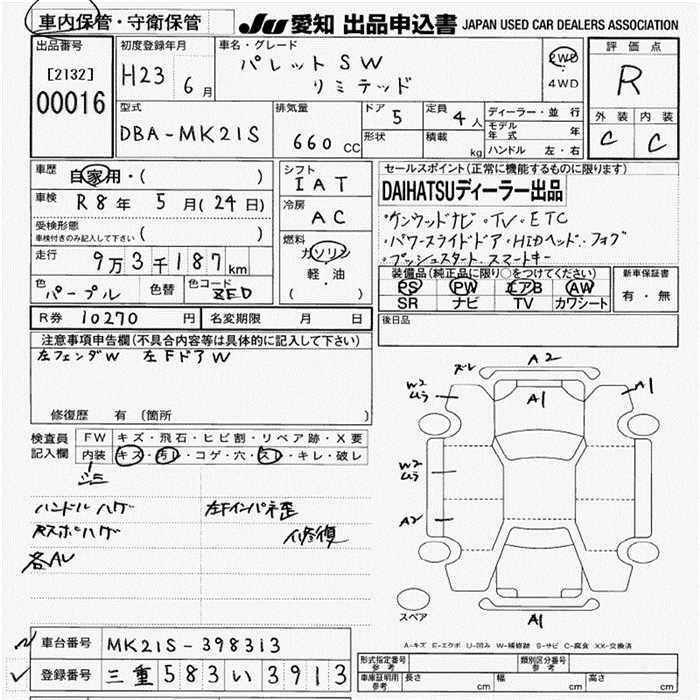 車内保管・守衛保管
JU 愛知 出品申込書 JAPAN USED CAR DEALERS ASSOCIATION
出品番号
[2132]
00016
初度登録年月
H23 6月
車名・グレード
パレットSW
リミテッド
2WD
・
4WD
評価点
R
外装 内装
C C
型式
DBA-MK21S
排気量
660 CC
ドア 5
形状
定員 4人
積載 kg
ディーラー・並行
モデル年式 年
ハンドル 左・右
車歴
自家用・( )
車検
R8年 5月(24日)
受検形態
車検付きのみ記入して下さい ( )
走行
9万3千187km
色 パープル
色替
色コード ZED
シフト
IAT
冷房
AC
燃料
ガソリン
軽・油
( )
セールスポイント(正常に機能するものに限ります)
DAIHATSUディーラー出品
・ケンウッドナビ・TV・ETC
・パワースライドドア・HIDヘッド・フォグ
・プッシュスタート・スマートキー
装備品(純正品に限り○をつけてください)
PS PW エアB AW
SR ナビ TV カワシート
新車保証書
有・無
R券 10270円
名変期限 月 日
後日品
注意事項申告欄(不具合内容等は具体的に記入して下さい)
左フェンダW 左FドアW
修復歴 有(箇所 )
検査員
記入欄
FW キズ・飛石・ヒビ割・リペア跡・X要
内装 キズ・汚レ・コゲ・穴・スレ・キレ・破レ
シミ
ハンドルハゲ
左Fインパネ歪
Rスポハゲ
修復
各AU
ズレ
A2
W2
ムラ
A1
A1
W2
ムラ
A2
A1
スペア
A-キズ E-エクボ U-凹み W-補修跡 S-サビ C-腐食 XX-交換済
車台番号 MK21S-398313
登録番号 三重583い3913
形式指定番号
参考
類別区分番号
参考
車庫証明用
参考
長さ cm
幅 cm
高さ cm